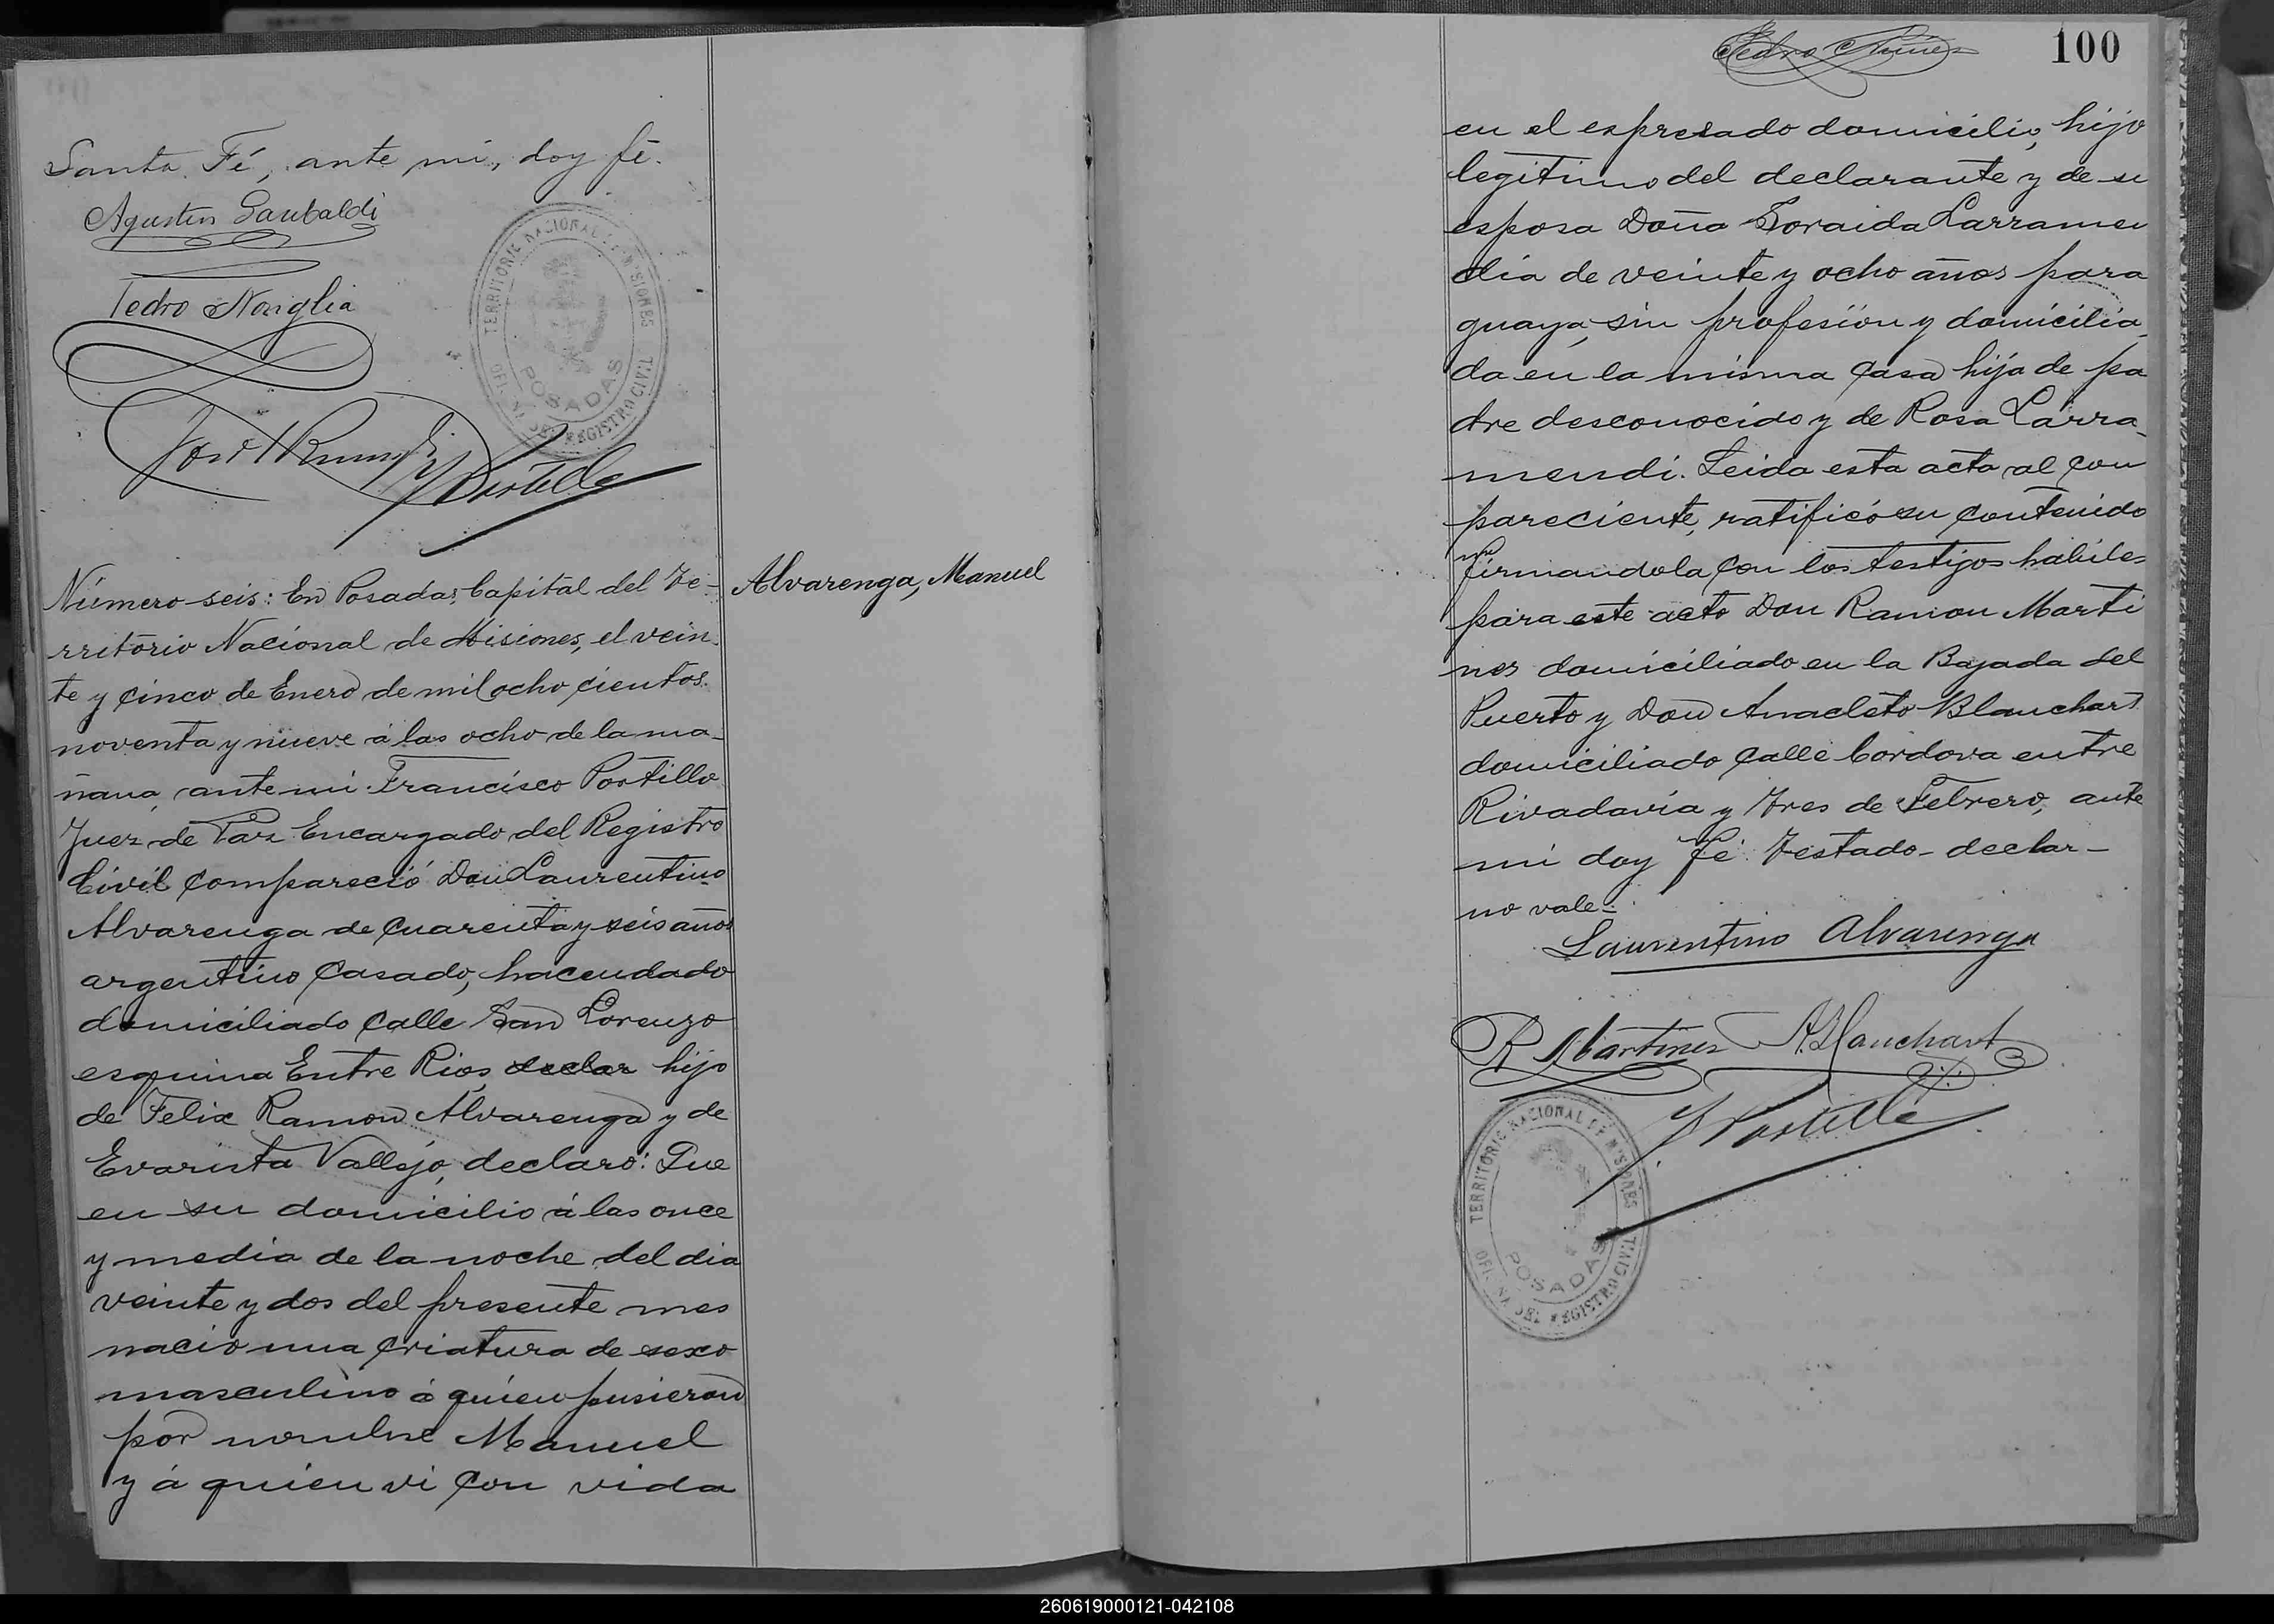 Santa Fé, ante mi, doy fé.
Agustin Garibaldi
Pedro Nonglia
TERRITORIO NACIONAL DE MISIONES
POSADAS
REGISTRO CIVIL
Portillo
Número seis: En Posadas, Capital del Te-
rritorio Nacional de Misiones, el vein
te y cinco de Enero de mil ocho cientos
noventa y nueve á las ocho de la ma-
ñana, ante mi Francisco Portillo
Juez de Paz Encargado del Registro
Civil compareció Don Laurentino
Alvarenga de cuarenta y seis años
argentino casado, hacendado
domiciliado calle San Lorenzo
esquina Entre Rios, declar hijo
de Felix Ramon Alvarenga y de
Evarista Vallejo, declaró: Que
en su domicilio á las once
y media de la noche del dia
veinte y dos del presente mes
nació una criatura de sexo
masculino á quien pusieron
por nombre Manuel
y á quien vi con vida
Alvarenga, Manuel
Pedro Nuñez
100
en el espresado domicilio, hijo
legitimo del declarante y de su
esposa Doña Soraida Larramen
dia de veinte y ocho años para
guaya, sin profesion y domicilia
da en la misma casa hija de pa
dre desconocido y de Rosa Larra-
mendi. Leida esta acta al con
pareciente, ratificó su contenido
firmandola con los testigos habiles
para este acto Don Ramon Marti
nes domiciliado en la Bajada del
Puerto y Don Anacleto Blanchart
domiciliado calle Cordova entre
Rivadavia y Tres de Febrero, ante
mi doy fé. Testado - declar -
no vale.-
Laurentino Alvarenga
R Martinez
A. Blanchart
F Portillo
TERRITORIO NACIONAL DE MISIONES
POSADAS
REGISTRO CIVIL
260619000121-042108